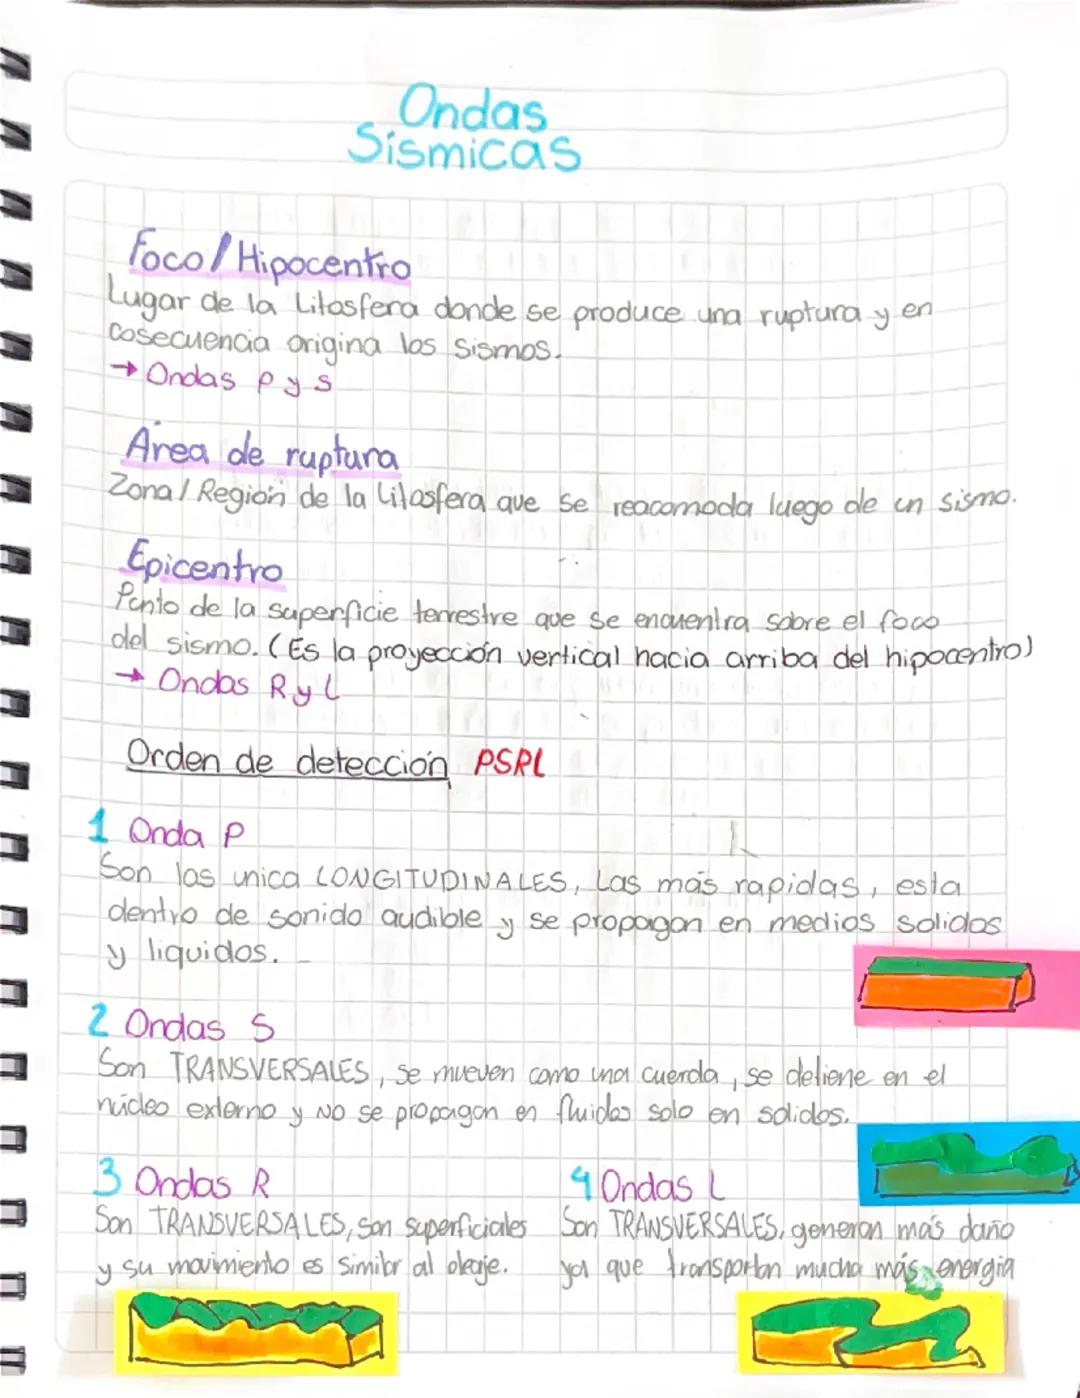 Ondas
Sísmicas
Foco/Hipocentro
Lugar de la Litosfera donde se produce una ruptura y en
cosecuencia origina los sismos.
→ Ondas P y S
Área de ruptura
Zona/Región de la Litosfera que se reacomoda luego de un sismo.
Epicentro
Punto de la superficie terrestre que se encuentra sobre el foco
del sismo. (Es la proyección vertical hacia arriba del hipocentro)
→ Ondas R y L
Orden de detección PSRL
1 Onda P
Son las unica LONGITUDINALES, Las más rapidas, esta
dentro de sonido audible y se propagan en medios solidos
y liquidos.
2 Ondas S
Son TRANSVERSALES, se mueven como una cuerda, se detiene en el
núcleo externo y NO se propagan en fluidos solo en solidos.
3 Ondas R
Son TRANSVERSALES, son superficiales
y su movimiento es similar al oleaje.
4 Ondas L
Son TRANSVERSALES, generan más daño
ya que transportan mucha más energia